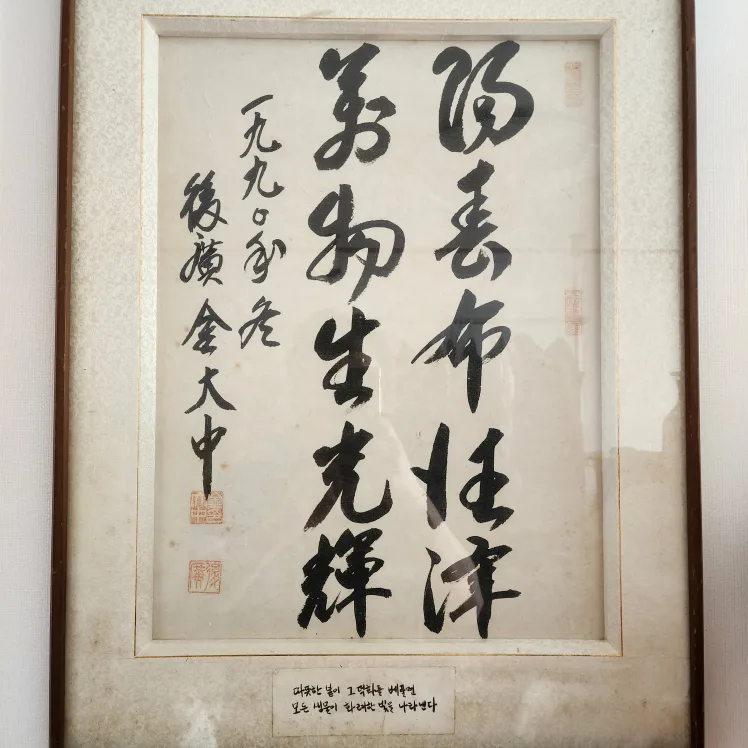 陽春布德澤
萬物生光輝
一九九〇年冬
後廣 金大中
따뜻한 봄이 그 덕화를 베풀면
모든 생물이 화려한 빛을 나타낸다